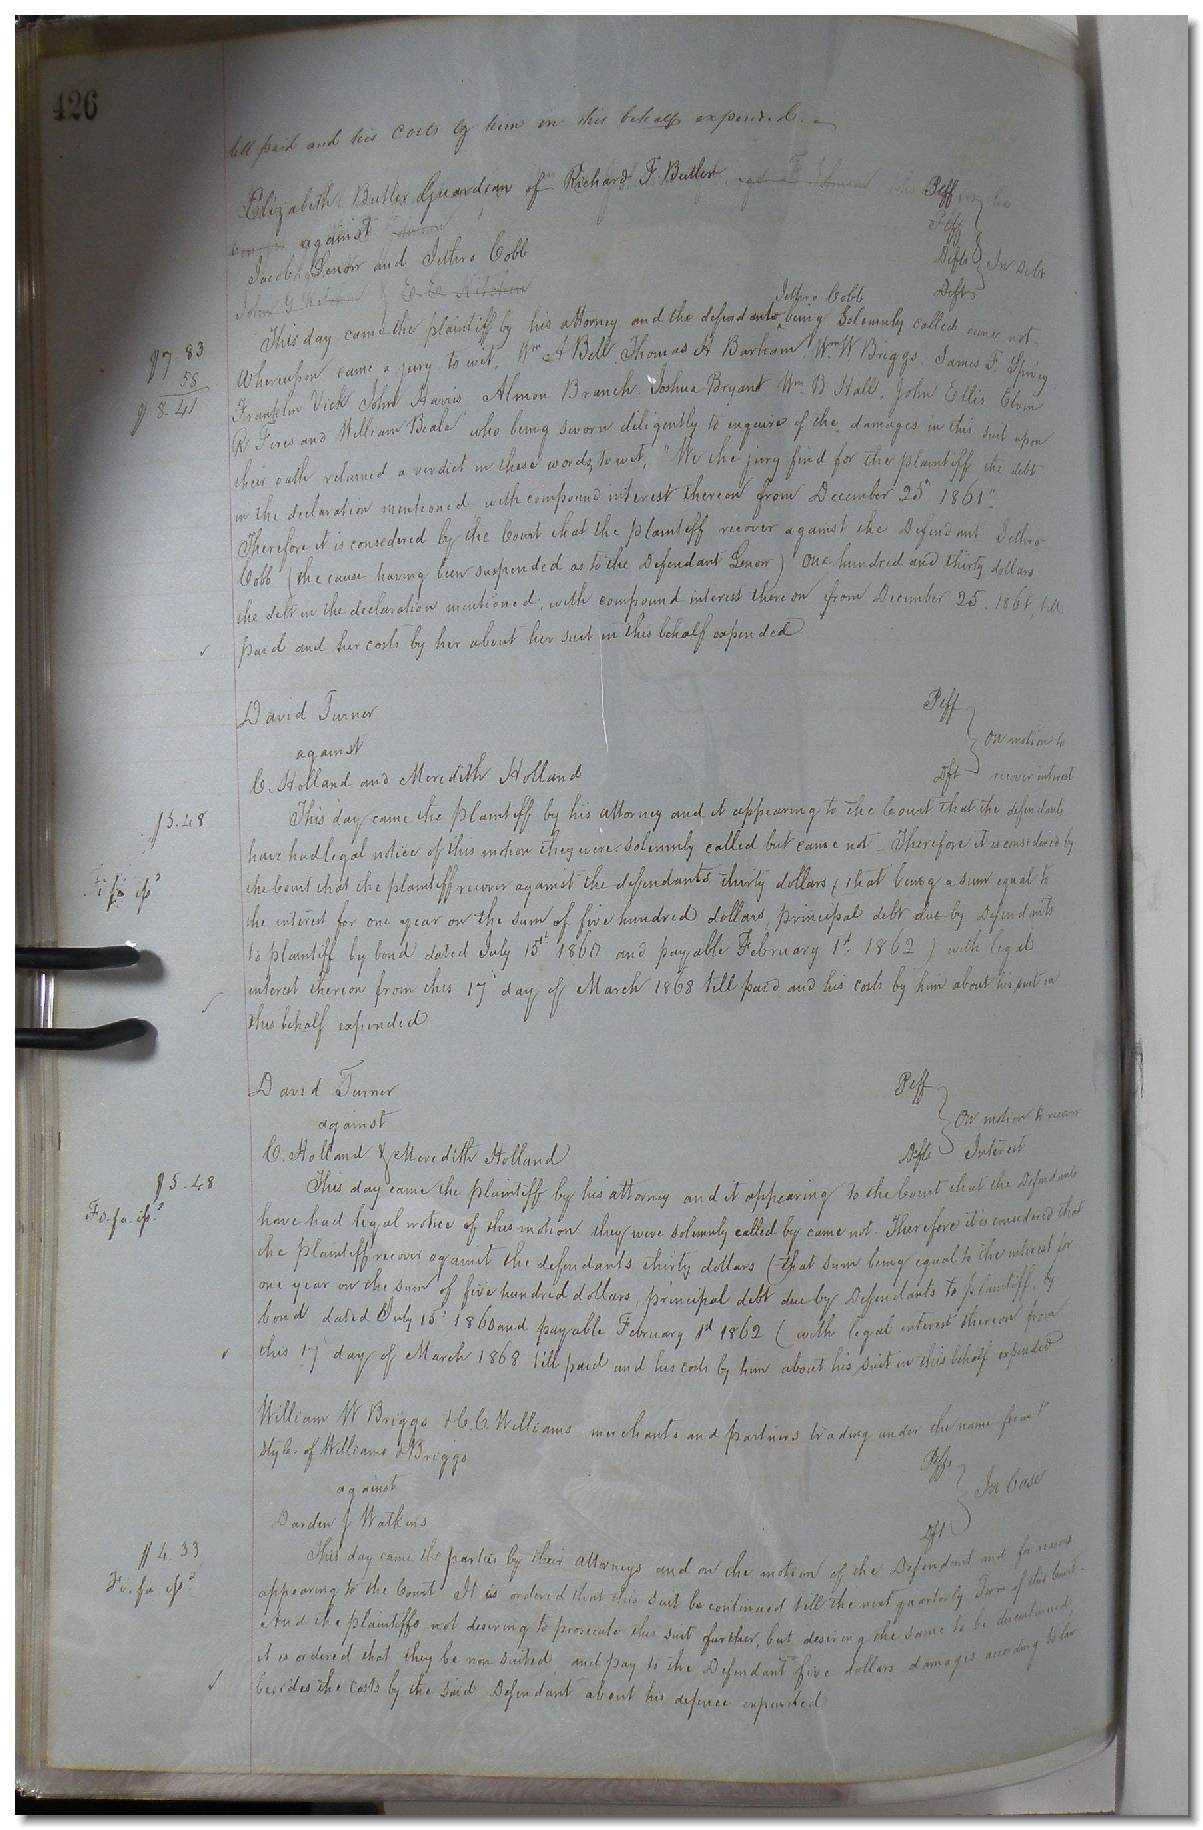 426
till paid and his costs by him in this behalf expended.
Elizabeth Butler Guardian of Richard F. Butler Plff
against Plff
Jacob Lenow and Jethro Cobb Defts In Debt
John G E. E. Kitchen Defts
Jethro Cobb
This day came the plaintiff by his attorney and the defendants being Solemnly called came not.
$7.83
58
$8.41
Whereupon came a jury to wit, Wm A Bell, Thomas A Barham, Wm W Briggs, James F Spivey
Franklin Vick John Harris Almon Branch Joshua Bryant Wm B Hall, John Ellis Elvin
R and William Beale who being sworn diligently to inquire of the damages in this suit upon
their oath returned a verdict in these words, to wit, "We the jury find for the plaintiff the debt
in the declaration mentioned with compound interest thereon from December 25th 1861".
Therefore it is considered by the Court that the plaintiff recover against the Defendant Jethro
Cobb (the cause having been suspended as to the Defendant Lenow) One hundred and thirty dollars
the debt in the declaration mentioned, with compound interest thereon from December 25. 1861, till
paid and her costs by her about her suit in this behalf expended
David Turner Plff
against On motion to
C. Holland and Meredith Holland Dft recover interest
$5.48
This day came the plaintiff by his attorney and it appearing to the Court that the defendants
have had legal notice of this motion they were solemnly called but came not. Therefore it is considered by
Fi fa isd
the Court that the plaintiff recover against the defendants thirty dollars (that being a sum equal to
the interest for one year on the sum of five hundred dollars, principal debt due by Defendants
to plaintiff by bond dated July 15th 1860 and payable February 1st. 1862) with legal
interest thereon from this 17 day of March 1868 till paid and his costs by him about his suit in
this behalf expended
David Turner Plff
against On motion to recover
C. Holland & Meredith Holland Defts Interest
$5.48
This day came the plaintiff by his attorney and it appearing to the Court that the Defendants
Fi. fa. isd
have had legal notice of this motion they were solemnly called by came not. Therefore it is considered that
the plaintiff recover against the defendants thirty dollars (that sum being equal to the interest for
one year on the sum of five hundred dollars, principal debt due by Defendants to plaintiff by
bond dated July 15 1860 and payable February 1st 1862 ( with legal interest thereon from
this 17 day of March 1868 till paid and his costs by him about his suit in this behalf expended
William W Briggs & C. C. Williams merchants and partners trading under the name firm &
style of Williams & Briggs Plffs
against In Case
Darden J Watkins Dft
$4.33
This day came the parties by their attorneys and on the motion of the Defendant and for reasons
Fi. fa isd
appearing to the Court It is ordered that this suit be continued till the next quarterly Term of this Court.
And the plaintiffs not desiring to prosecute this suit further, but desiring the same to be discontinued
it is ordered that they be non suited, and pay to the Defendant five dollars damages according to law
besides the costs by the said Defendant about his defence expended